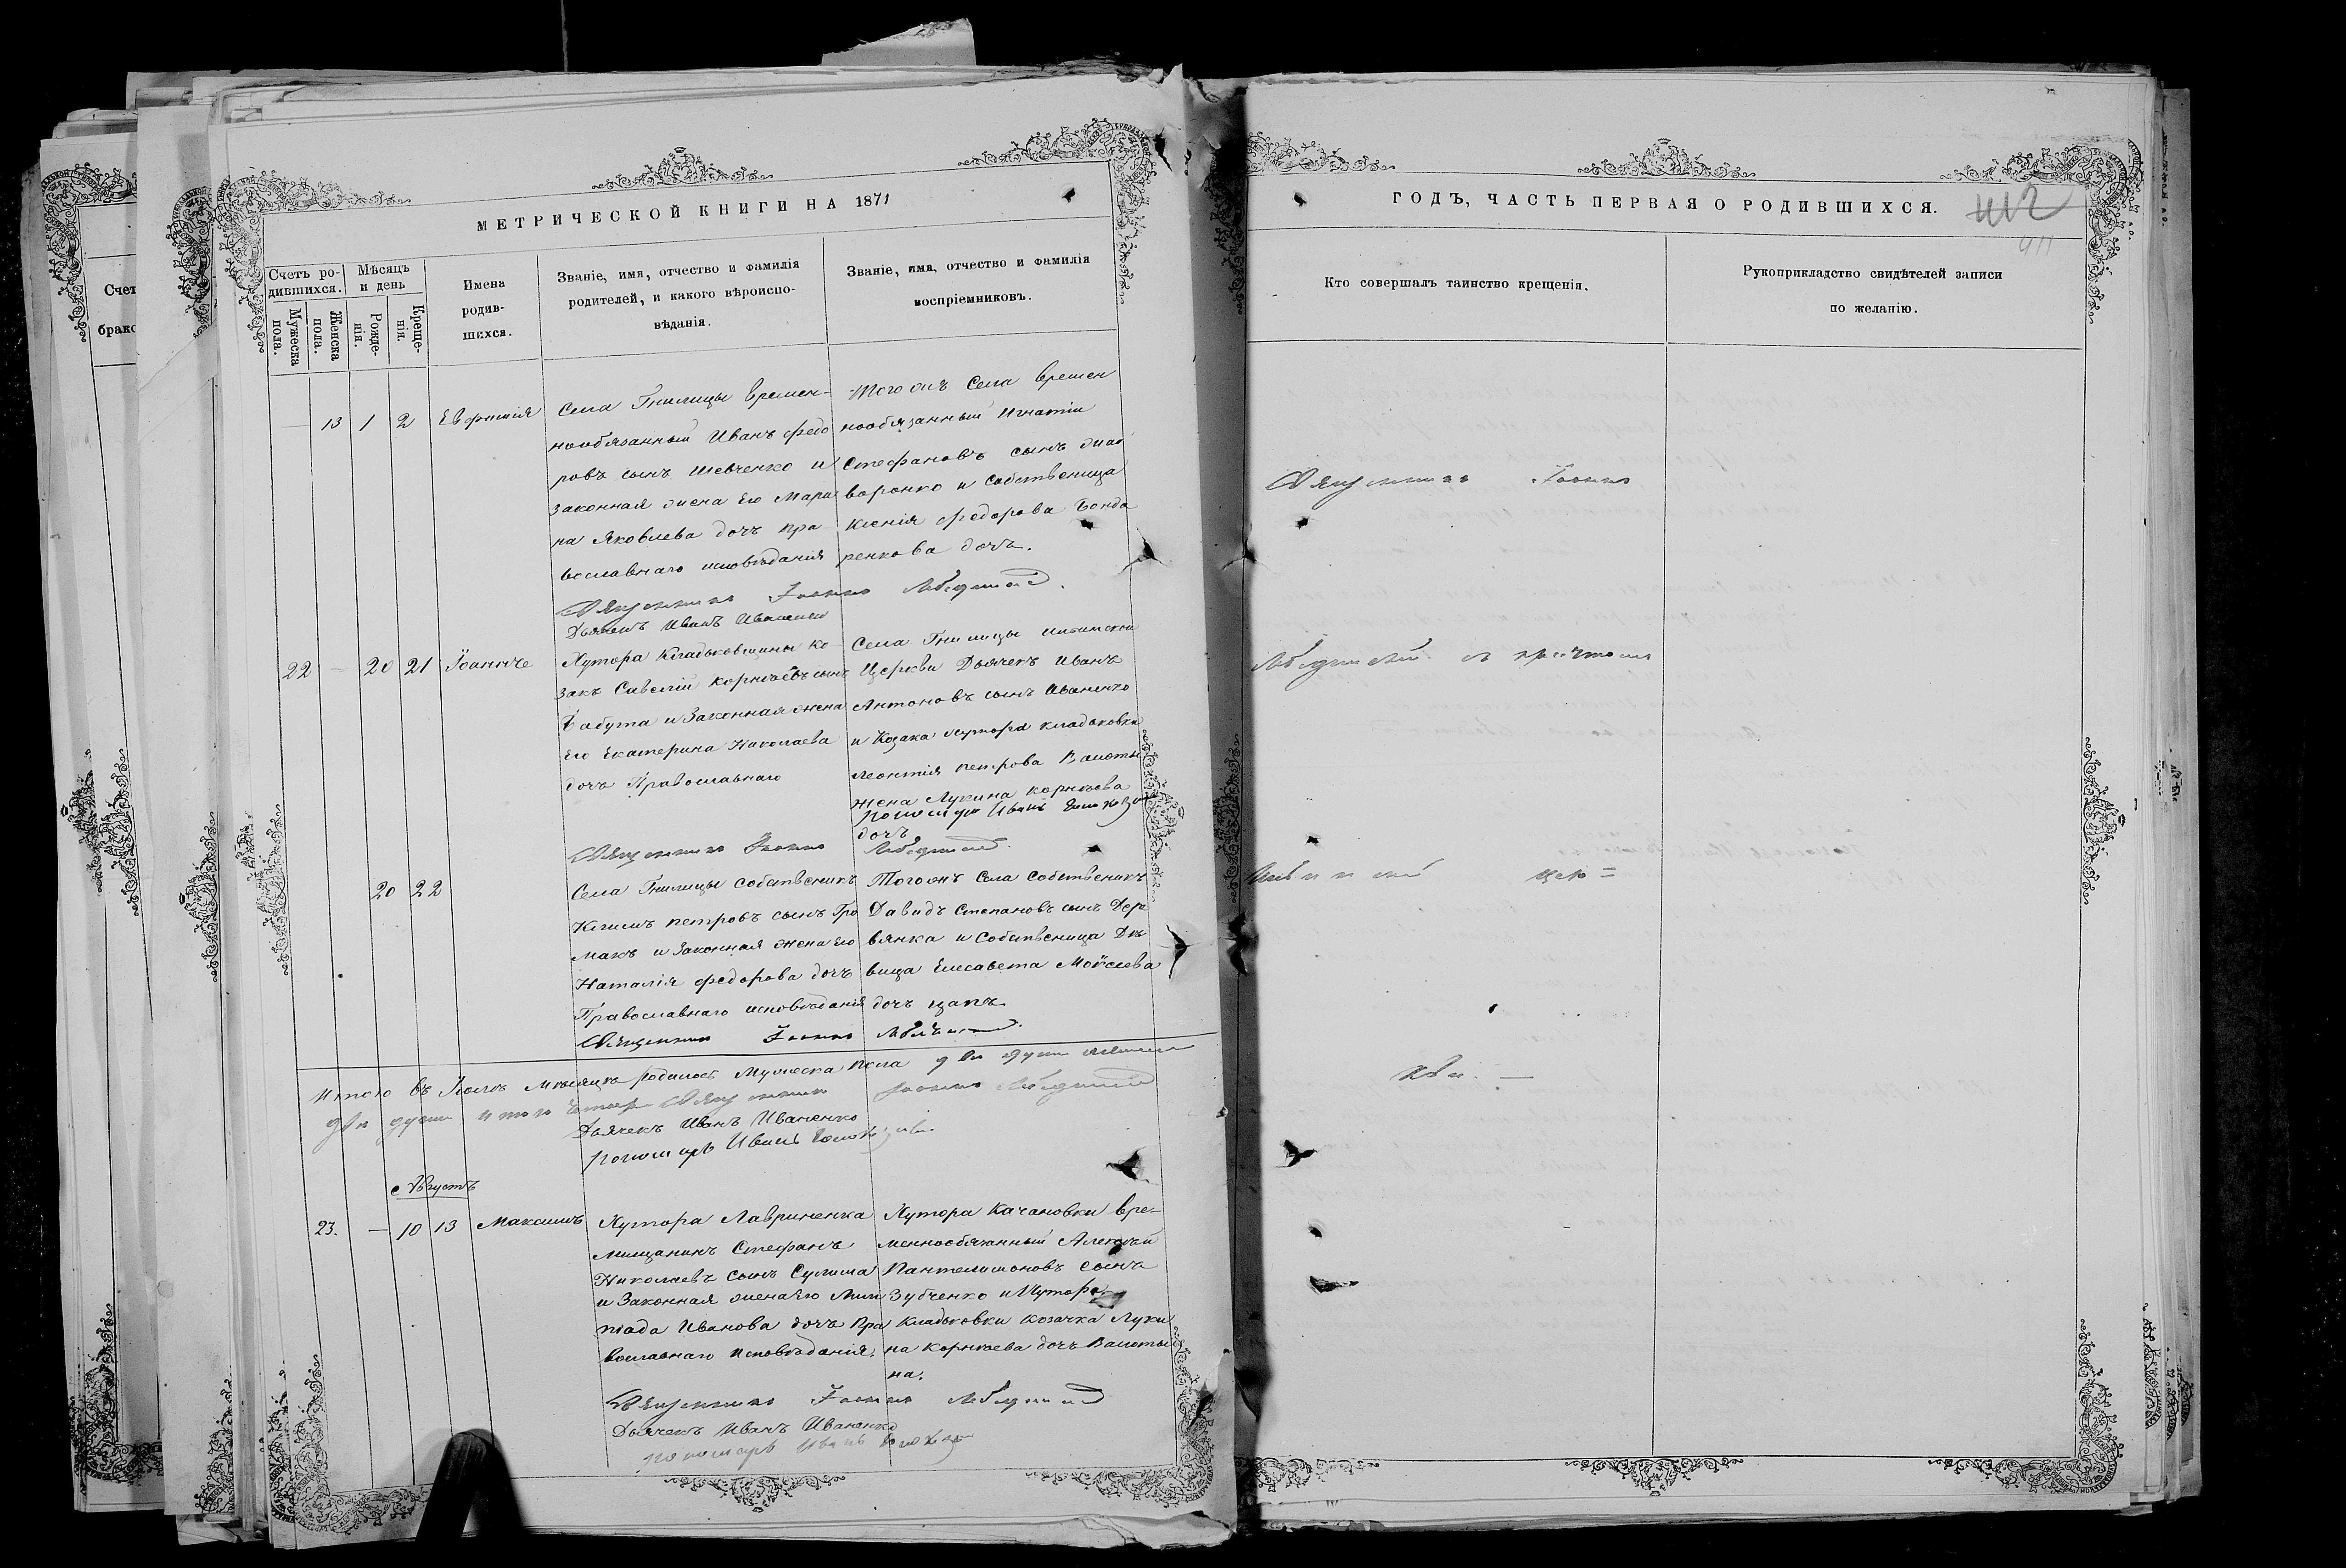 МЕТРИЧЕСКОЙ КНИГИ НА 1871
Счетъ ро-
дившихся.
Мѣсяцъ
и день
Мужеска
пола.
Женска
пола.
Рожде-
нія.
Креще-
нія.
Имена
родив-
шихся.
Званіе, имя, отчество и фамилія
родителей, и какого вѣроиспо-
вѣданія.
Званіе, имя, отчество и фамилія
воспріемниковъ.
— 13 1 2 Евфимія
Села Гнилицы времен-
нообязанный Иванъ Федо
ровъ сынъ Шевченко и
законная жена Его Мари
на Яковлева дочъ пра
вославнаго исповѣданія
села времен
нообязанный Игнатій
Стефановъ сынъ
воронко и собственица
Ксенія Федорова Бонда
ренкова дочь.
Священникъ Іоаннъ
Дьячекъ Иванъ Иваненко
22 — 20 21
Хутора Кладьковщины ко-
закъ Савелій Корнѣевъ сынъ
Бабута и Законная жена
Его Екатерина Николаева
дочъ Православнаго
Села Гнилицы
Церкви Дьячекъ Иванъ
Антоновъ сынъ Иваненко
и Козака хутора кладьковки
Леонтія петрова
жена Лукина корнѣева
пономарь Иванъ
дочъ
Священникъ Іоаннъ
20 22
Села Гнилицы собственикъ
Климъ петровъ сынъ Гро
макъ и Законная жена Его
Наталія Федорова дочъ
Православнаго исповѣданія
села собственикъ
Давидъ Степановъ сынъ Дере
вянка и собственица Дѣ
вица Елисавета Мойсеева
дочъ цапъ
Священникъ Іоаннъ
Итого въ Іюлѣ Мѣсяцѣ родилось Мужеска пола двѣ души
двѣ души итого Священникъ Іоаннъ
Дьячекъ Иванъ Иваненко
пономарь Иванъ
Августъ
23. — 10 13 Максимъ
Хутора Лавриненка
Мещанинъ Стефанъ
Николаевъ сынъ Сулима
и Законная жена Его Оли
піада Иванова дочъ Пра
вославнаго исповѣданія.
Хутора Качановки вре-
меннообязанный Алексѣй
Пантелимоновъ сынъ
Зубченко и Хутора
Кладьковки козачка Луки
на Корнѣева дочъ
на.
Священникъ Іоаннъ
Дьячекъ Иванъ Иваненко
пономарь Иванъ
ГОДЪ, ЧАСТЬ ПЕРВАЯ О РОДИВШИХСЯ.
Кто совершалъ таинство крещенія.
Рукоприкладство свидѣтелей записи
по желанію.
Священникъ Іоаннъ
съ причтомъ